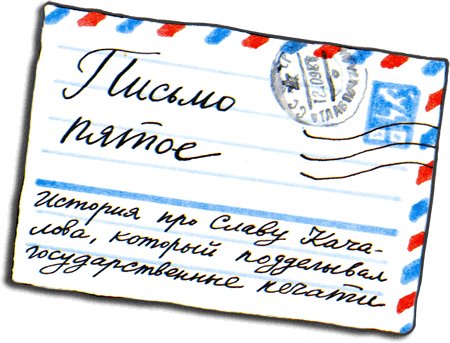 Письмо
пятое
История про Славу Кача-
лова, который подделывал
государственные печати